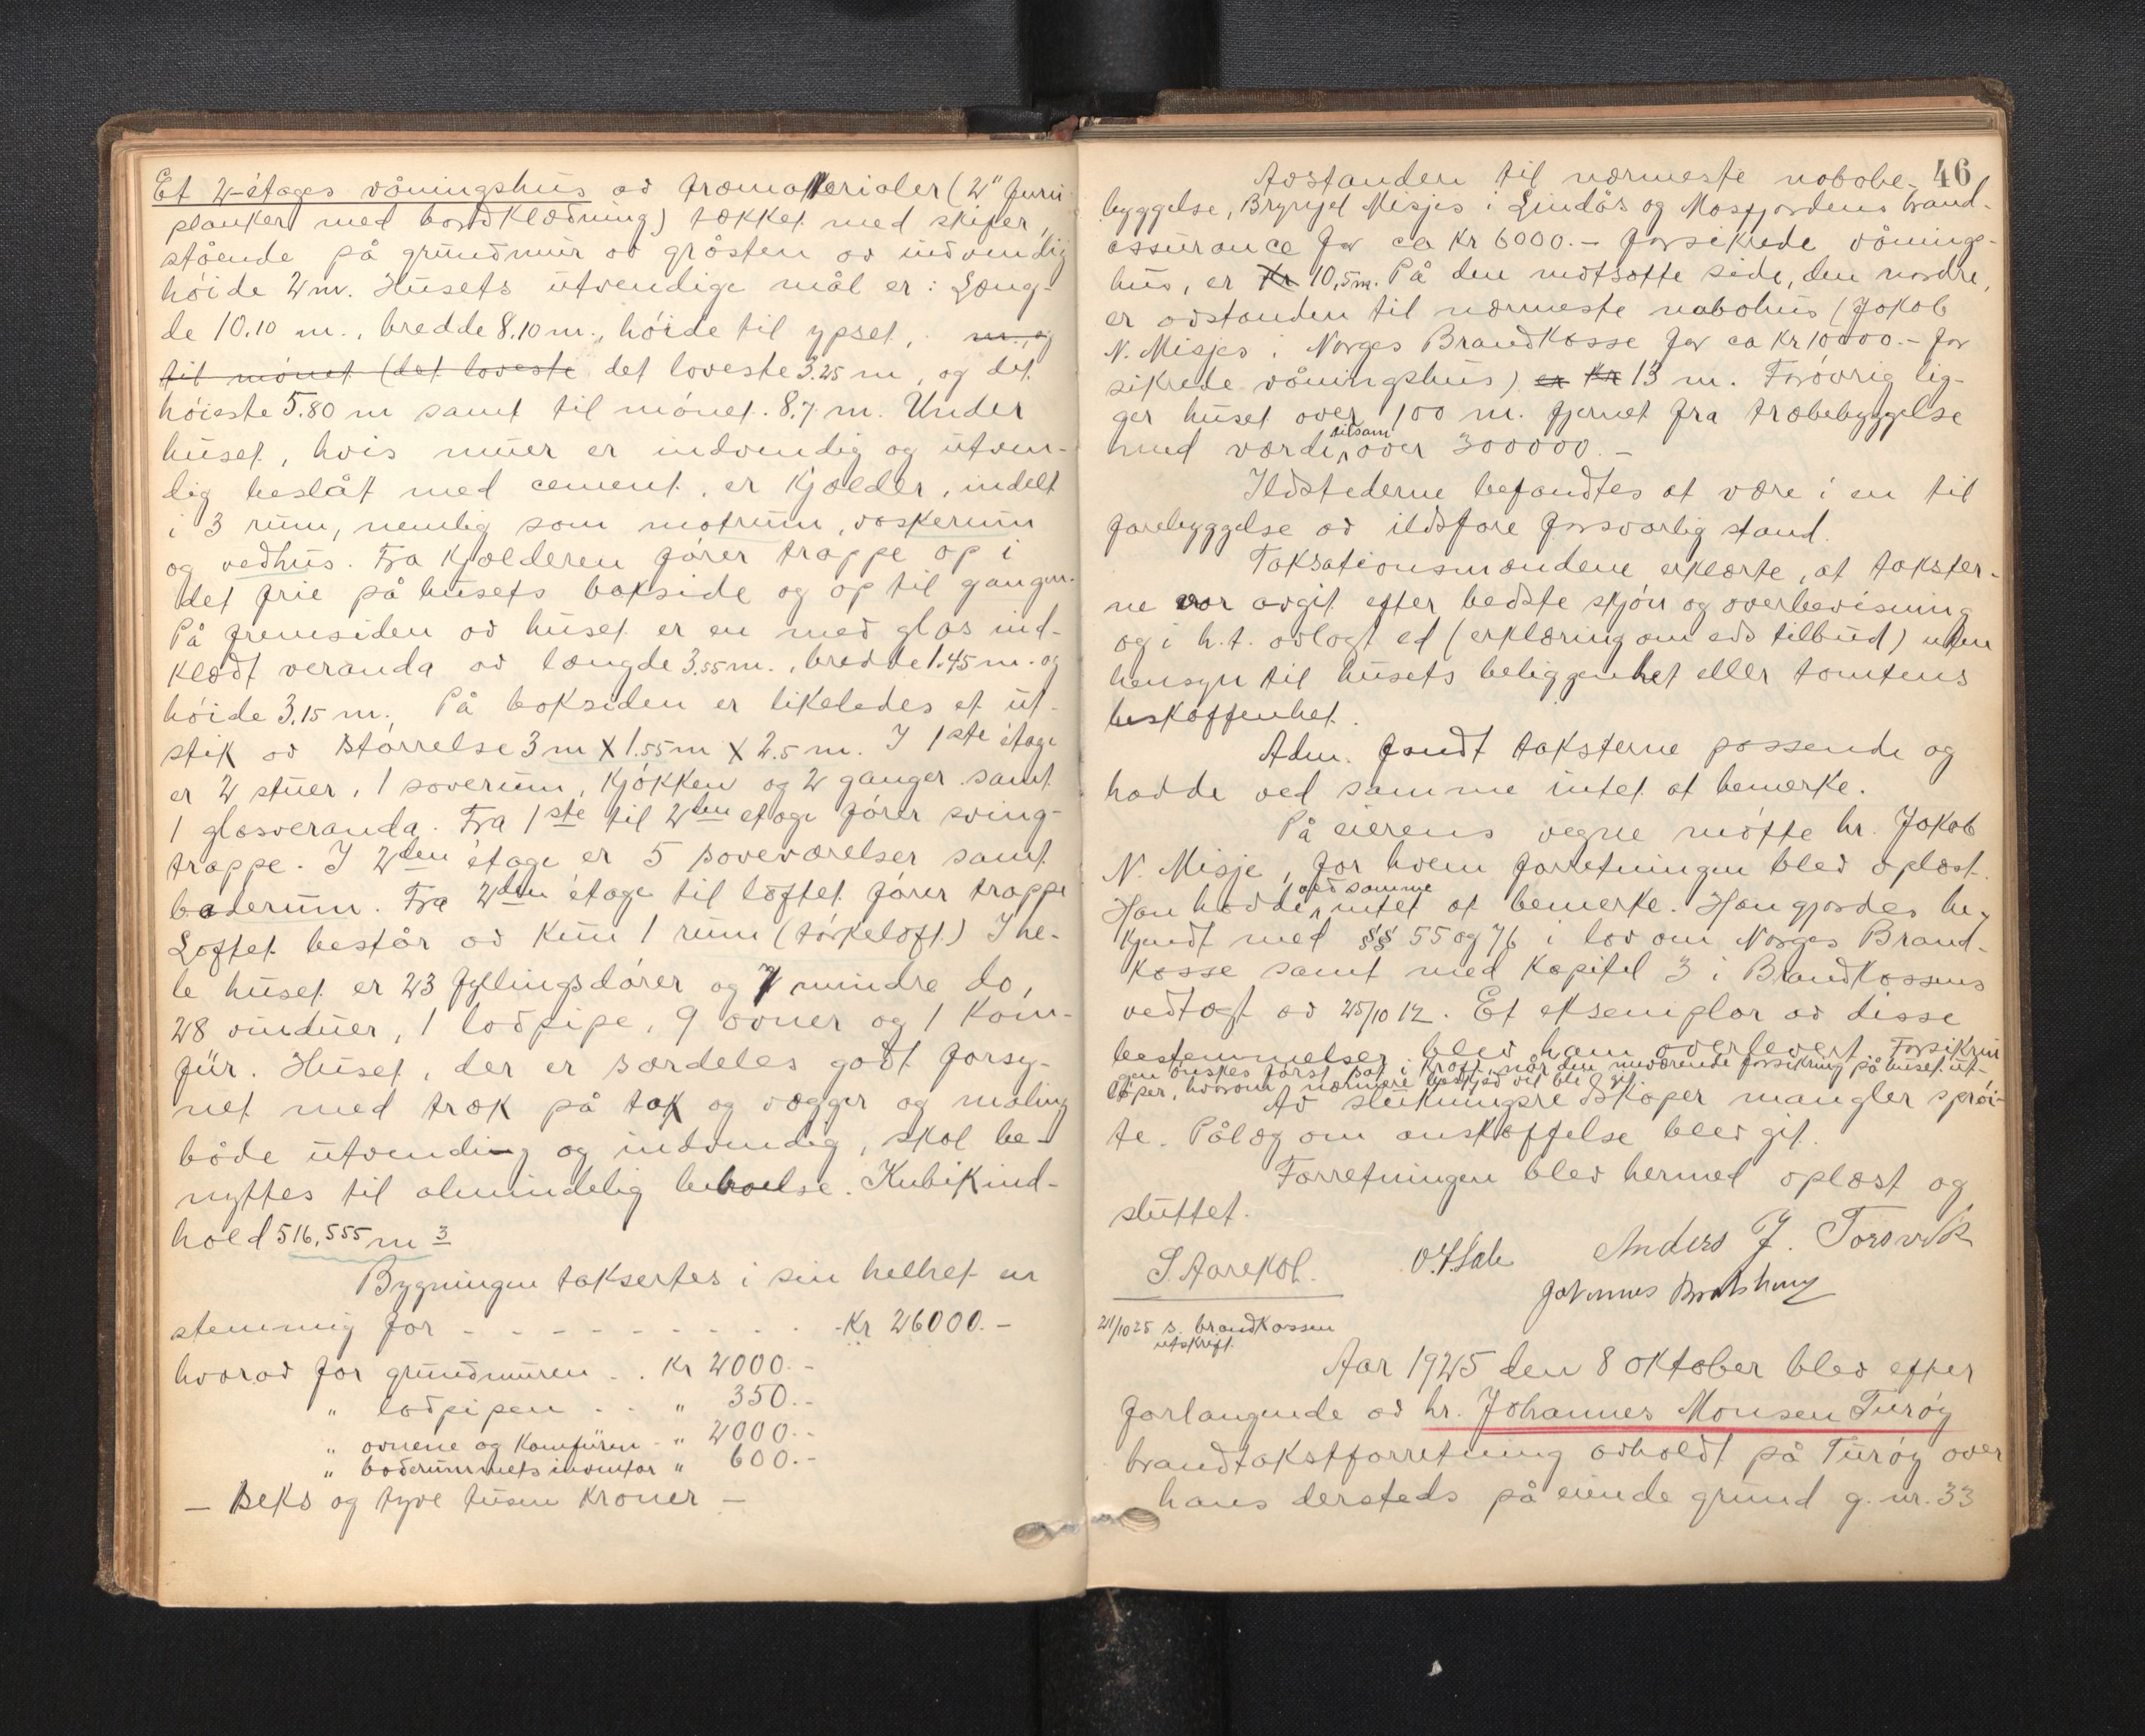 Et 2-étages våningshus av træmaterialer (2" furu
planker med bordklædning) tækket med skifer,
stående på grundmur av gråsten av indvendig
høide 2 m. Husets utvendige mål er: Læng-
de 10.10 m., bredde 8.10 m., høide til gpset, m., og
til mønet (det laveste det laveste 3.25 m, og det
høieste 5.80 m samt til mønet 8.7 m. Under
huset, hvis muer er indvendig og utven-
dig beslåt med cement, er kjælder, indelt
i 3 rum, nemlig som matrum, vaskerum
og vedhus. Fra kjælderen fører trappe op i
det frie på husets bakside og op til gangen.
På fremsiden av huset er en med glas ind-
klædt veranda av længde 3.55 m., bredde 1.45 m. og
høide 3.15 m. På baksiden er likeledes et ut-
stik av størrelse 3 m x 1.55 m x 2.5 m. I 1ste étage
er 2 stuer, 1 soverum, kjøkken og 2 ganger samt
1 glasveranda. Fra 1ste til 2den etage fører sving-
trappe. I 2den étage er 5 soveværelser samt
baderum. Fra 2den étage til loftet fører trappe
Loftet består av kun 1 rum (tørkeloft) I he-
le huset er 23 fyllingsdører og 7 mindre do,
28 vinduer, 1 lodpipe, 9 ovner og 1 kom-
für. Huset, der er særdeles godt forsy-
net med træk på tak og vægger og maling
både utvendig og indvendig, skal be-
nyttes til almindelig beboelse. Kubikind-
hold 516,555 m 3
Bygningen taksertes i sin helhet en
stemmig for - - - - - - - - - Kr 26000.-
hvorav for grundmuren . . Kr 2000.-
" lodpipen . . " 350.-
" ovnene og komfüren - " 2000.-
" baderummets inventar " 600.-
- Seks og tyve tusen kroner -
46
Avstanden til nærmeste nabobe-
byggelse, Brynjel Misjes i Lindås og Masfjordens brand-
assurance for ca Kr 6000.- forsikrede vånings-
hus, er Kr 10,5 m. På den motsatte side, den nordre,
er avstanden til nærmeste nabohus (Jakob
N. Misjes i Norges Brandkasse for ca Kr 10000.- for
sikrede våningshus) er Kr 13 m. Forøvrig lig-
ger huset over 100 m. fjernet fra træbebyggelse
med værdi tilsam over 300000.-
Ildstederne befandtes at være i en til
forebyggelse av ildsfare forsvarlig stand.
Taksationsmændene erklærte, at takster-
ne var avgit efter bedste skjøn og overbevisning
og i h.t. avlagt ed (erklæring om eds tilbud) uten
hensyn til husets beliggenhet eller tomtens
beskaffenhet.
Adm. fandt taksterne passende og
hadde ved samme intet at bemerke.
På eierens vegne møtte hr. Jakob
N. Misje, for hvem forretningen blev oplæst.
Han hadde ved samme intet at bemerke. Han gjordes be-
kjendt med §§ 55 og 76 i lov om Norges Brand-
kasse samt med kapitel 3 i Brandkassens
vedtægt av 25/10 12. Et eksemplar av disse
bestemmelser blev ham overlevert. Forsikrin
gen ønskes først sat i kraft, når den nuværende forsikring på huset ut-
løper, hvorom nærmere beskjed vil bli git.
Av slukningsredskaper mangler sprøi-
te. Pålæg om anskaffelse blev git.
Forretningen blev hermed oplæst og
sluttet.
S. Aarekol. Anders J. Torsvik
Johannes
21/10 25 s. brandkassen
utskrift.
Aar 1925 den 8 oktober blev efter
forlangende av hr. Johannes Monsen Turøy
brandtakstforretning avholdt på Turøy over
hans dersteds på eiende grund g. nr. 33